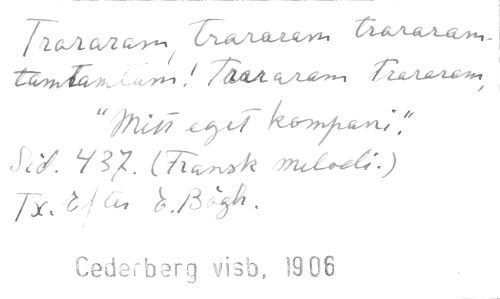 Trararam, trararam trararam-
tamtamtam! Trararam Trararam,
"Mitt eget kompani."
Sid. 437. (Fransk melodi.)
Tx. Efter E. Bögh.
Cederberg visb, 1906